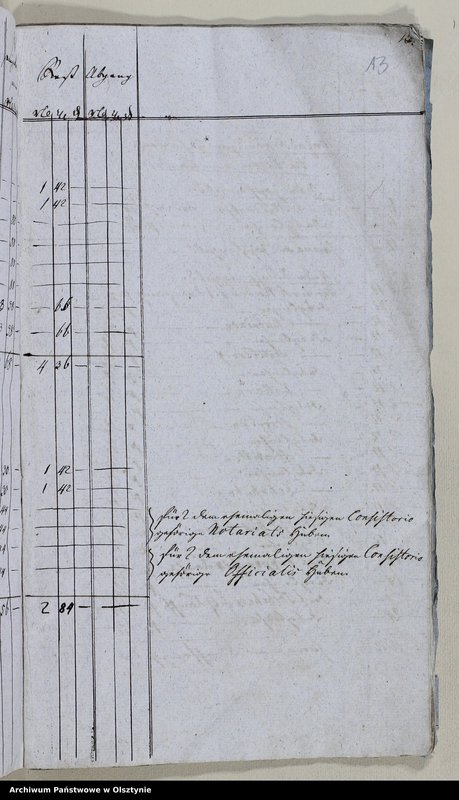 13
Rest Abgang
1 42
1 42
66
66
4 36
1 42
1 42
für 2 dem ehemaligen hiesigen Consistorio
gehörige Notariats Huben
für 2 dem ehemaligen hiesigen Consistorio
gehörige Officialis Huben
2 84
Archiwum Państwowe w Olsztynie